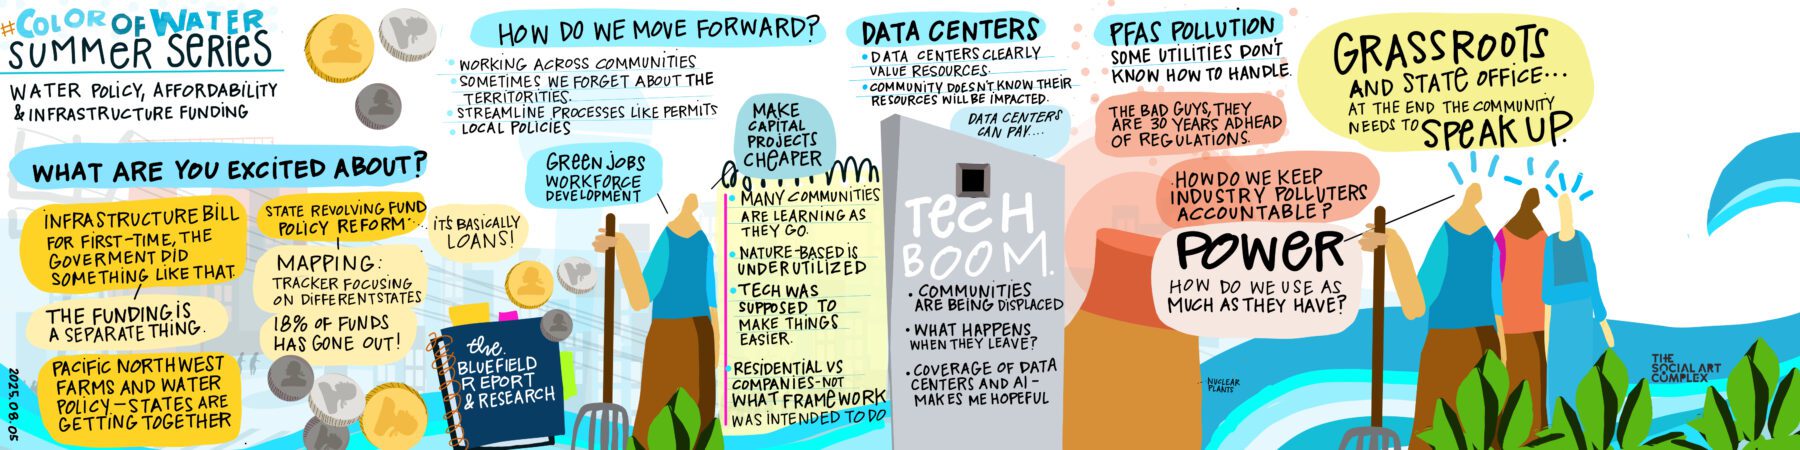 #COLOR OF WATER
SUMMER SERIES
WATER POLICY, AFFORDABILITY
& INFRASTRUCTURE FUNDING
WHAT ARE YOU EXCITED ABOUT?
INFRASTRUCTURE BILL
FOR FIRST-TIME, THE
GOVERMENT DID
SOMETHING LIKE THAT.
THE FUNDING IS
A SEPARATE THING.
PACIFIC NORTHWEST
FARMS AND WATER
POLICY-STATES ARE
GETTING TOGETHER
2025.08.05
STATE REVOLVING FUND
POLICY REFORM
MAPPING:
TRACKER FOCUSING
ON DIFFERENT STATES
18% OF FUNDS
HAS GONE OUT!
IT'S BASICALLY
LOANS!
the.
BLUEFIELD
REPORT
& RESEARCH
HOW DO WE MOVE FORWARD?
• WORKING ACROSS COMMUNITIES
• SOMETIMES WE FORGET ABOUT THE
TERRITORITIES.
• STREAMLINE PROCESSES LIKE PERMITS
• LOCAL POLICIES
GREEN JOBS
WORKFORCE
DEVELOPMENT
MAKE
CAPITAL
PROJECTS
CHEAPER
• MANY COMMUNITIES
ARE LEARNING AS
THEY GO.
• NATURE-BASED IS
UNDERUTILIZED
• TECH WAS
SUPPOSED TO
MAKE THINGS
EASIER.
• RESIDENTIAL VS
COMPANIES-NOT
WHAT FRAMEWORK
WAS INTENDED TO DO
DATA CENTERS
• DATA CENTERS CLEARLY
VALUE RESOURCES.
• COMMUNITY DOESN'T KNOW THEIR
RESOURCES WILL BE IMPACTED.
DATA CENTERS
CAN PAY...
TECH
BOOM.
• COMMUNITIES
ARE BEING DISPLACED
• WHAT HAPPENS
WHEN THEY LEAVE?
• COVERAGE OF DATA
CENTERS AND AI-
MAKES ME HOPEFUL
PFAS POLLUTION
SOME UTILITIES DON'T
KNOW HOW TO HANDLE.
THE BAD GUYS, THEY
ARE 30 YEARS ADHEAD
OF REGULATIONS.
HOW DO WE KEEP
INDUSTRY POLLUTERS
ACCOUNTABLE?
POWER
HOW DO WE USE AS
MUCH AS THEY HAVE?
... NUCLEAR
PLANTS
GRASSROOTS
AND STATE OFFICE...
AT THE END THE COMMUNITY
NEEDS TO SPEAK UP.
THE
SOCIAL ART
COMPLEX